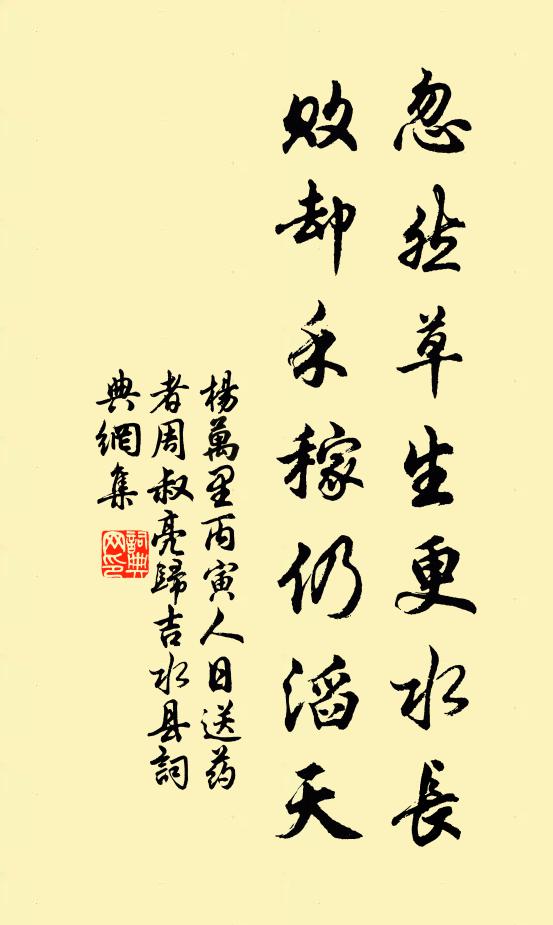 忽然草生更水長
敗却禾稼仍滔天
楊萬里丙寅人日送药
者周叔亮歸吉水县詞
典網集
詞典
网印